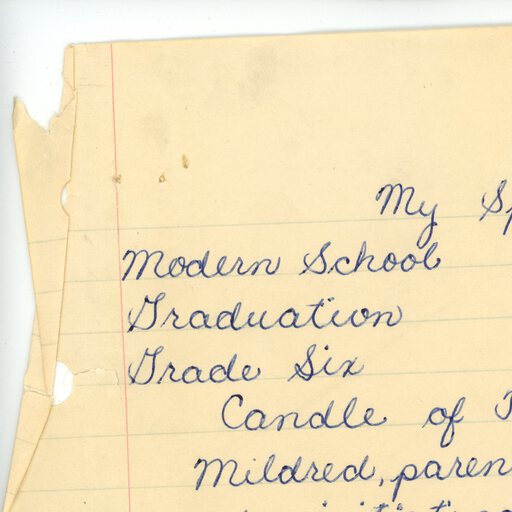 My Sp
Modern School
Graduation
Grade Six
Candle of
Mildred, paren